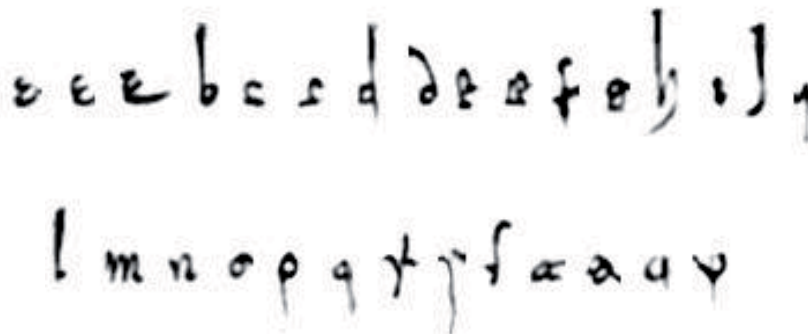 a a a b c c d ∂ e e f g h i J
l m n o p q r r ſ t t u v